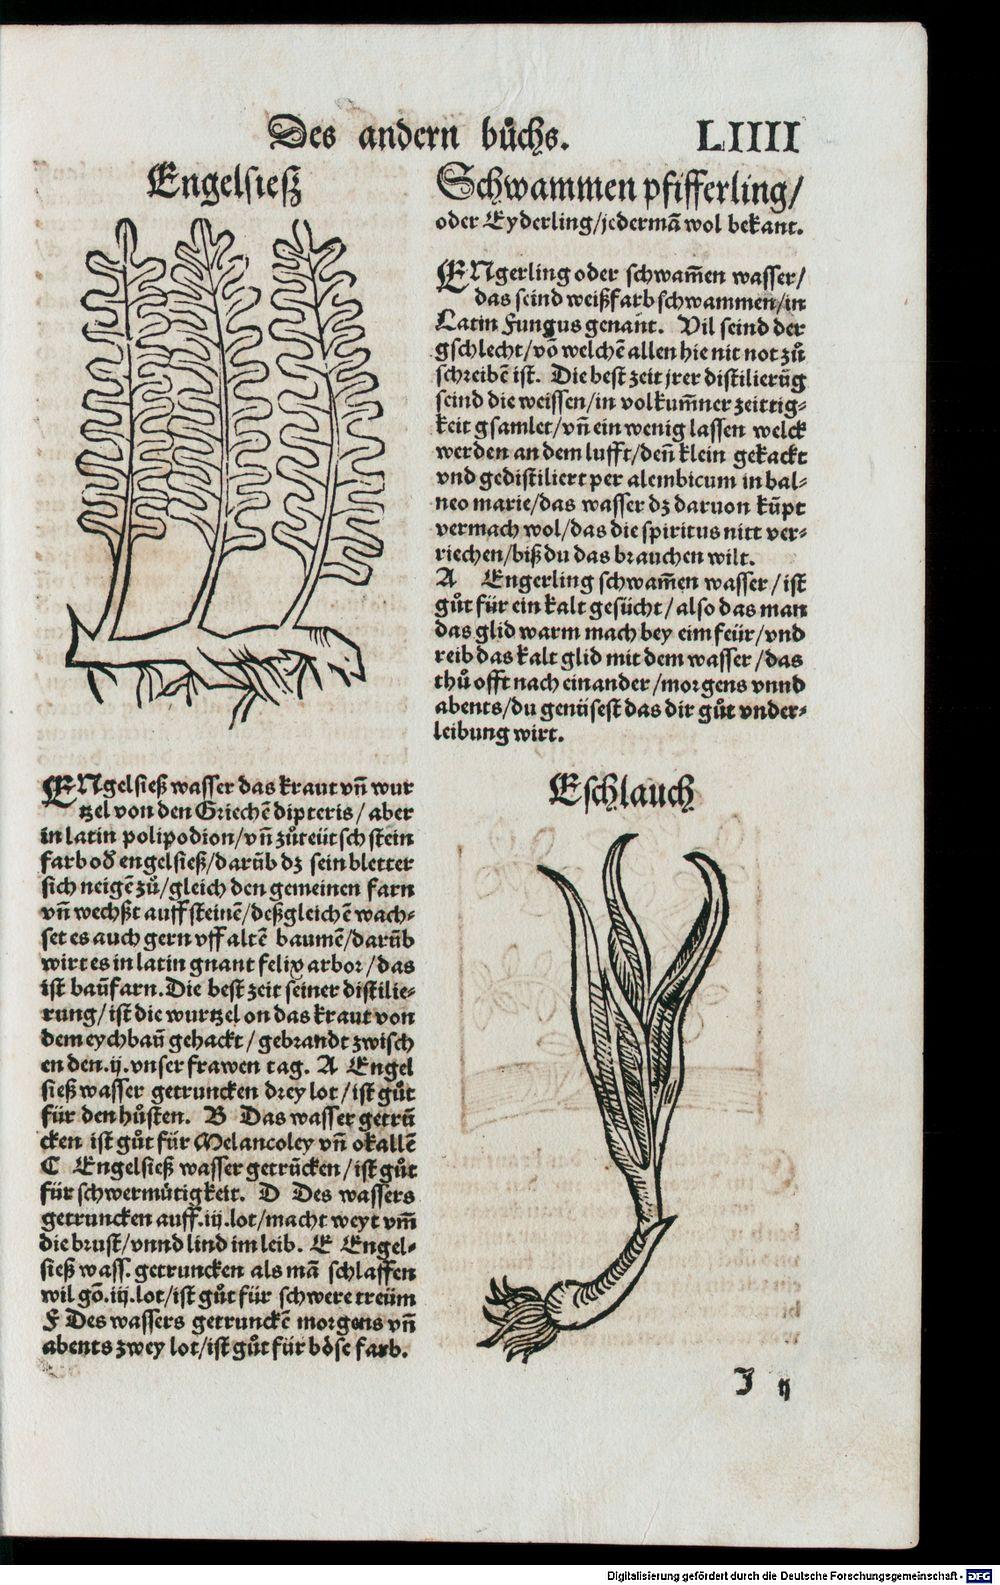 Des andern bůchs.
LIIII
Engelsieß
ENgelsieß wasser das kraut vñ wur
tzel von den Griechẽ dipteris / aber
in latin polipodion/vñ zůteütsch stein
farb oð engelsieß/darũb dz sein bletter
sich neigẽ zů/gleich den gemeinen farn
vñ wechßt auff steinẽ/deßgleichẽ wach⸗
set es auch gern vff altẽ baumẽ/darũb
wirt es in latin gnant felix arbor/das
ist baũfarn. Die best zeit seiner distilie⸗
rung/ist die wurtzel on das kraut von
dem eychbaũ gehackt/gebrandt zwisch
en den .ij. vnser frawen tag. A Engel
sieß wasser getruncken drey lot/ist gůt
für den hůsten. B Das wasser getrũ
cken ist gůt für Melancoley vñ ok allẽ
C Engelsieß wasser getrũcken/ist gůt
für schwermůtigkeit. D Des wassers
getruncken auff .iij. lot/macht weyt vm̃
die brust/vnnd lind im leib. E Engel⸗
sieß wass. getruncken als mã schlaffen
wil gõ .iij. lot/ist gůt für schwere treüm
F Des wassers getrunckẽ morgens vñ
abents zwey lot/ist gůt für böse farb.
Schwammen pfifferling/
oder Eyderling/jedermã wol bekant.
ENgerling oder schwam̃en wasser/
das seind weißfarb schwammen/in
Latin Fungus genant. Vil seind der
gschlecht/võ welchẽ allen hie nit not zů
schreibẽ ist. Die best zeit jrer distilierũg
seind die weissen/in volkum̃ner zeittig⸗
keit gsamlet/vñ ein wenig lassen welck
werden an dem lufft/deñ klein gekackt
vnd gedistiliert per alembicum in bal⸗
neo marie/das wasser dz daruon kũpt
vermach wol/das die spiritus nitt ver⸗
riechen/biß du das brauchen wilt.
A Engerling schwam̃en wasser/ist
gůt für ein kalt gesücht/also das man
das glid warm mach bey eim feür/vnd
reib das kalt glid mit dem wasser/das
thů offt nach einander/morgens vnnd
abents/du genüsest das dir gůt vnder⸗
leibung wirt.
Eschlauch
J ij
Digitalisierung gefördert durch die Deutsche Forschungsgemeinschaft - DFG